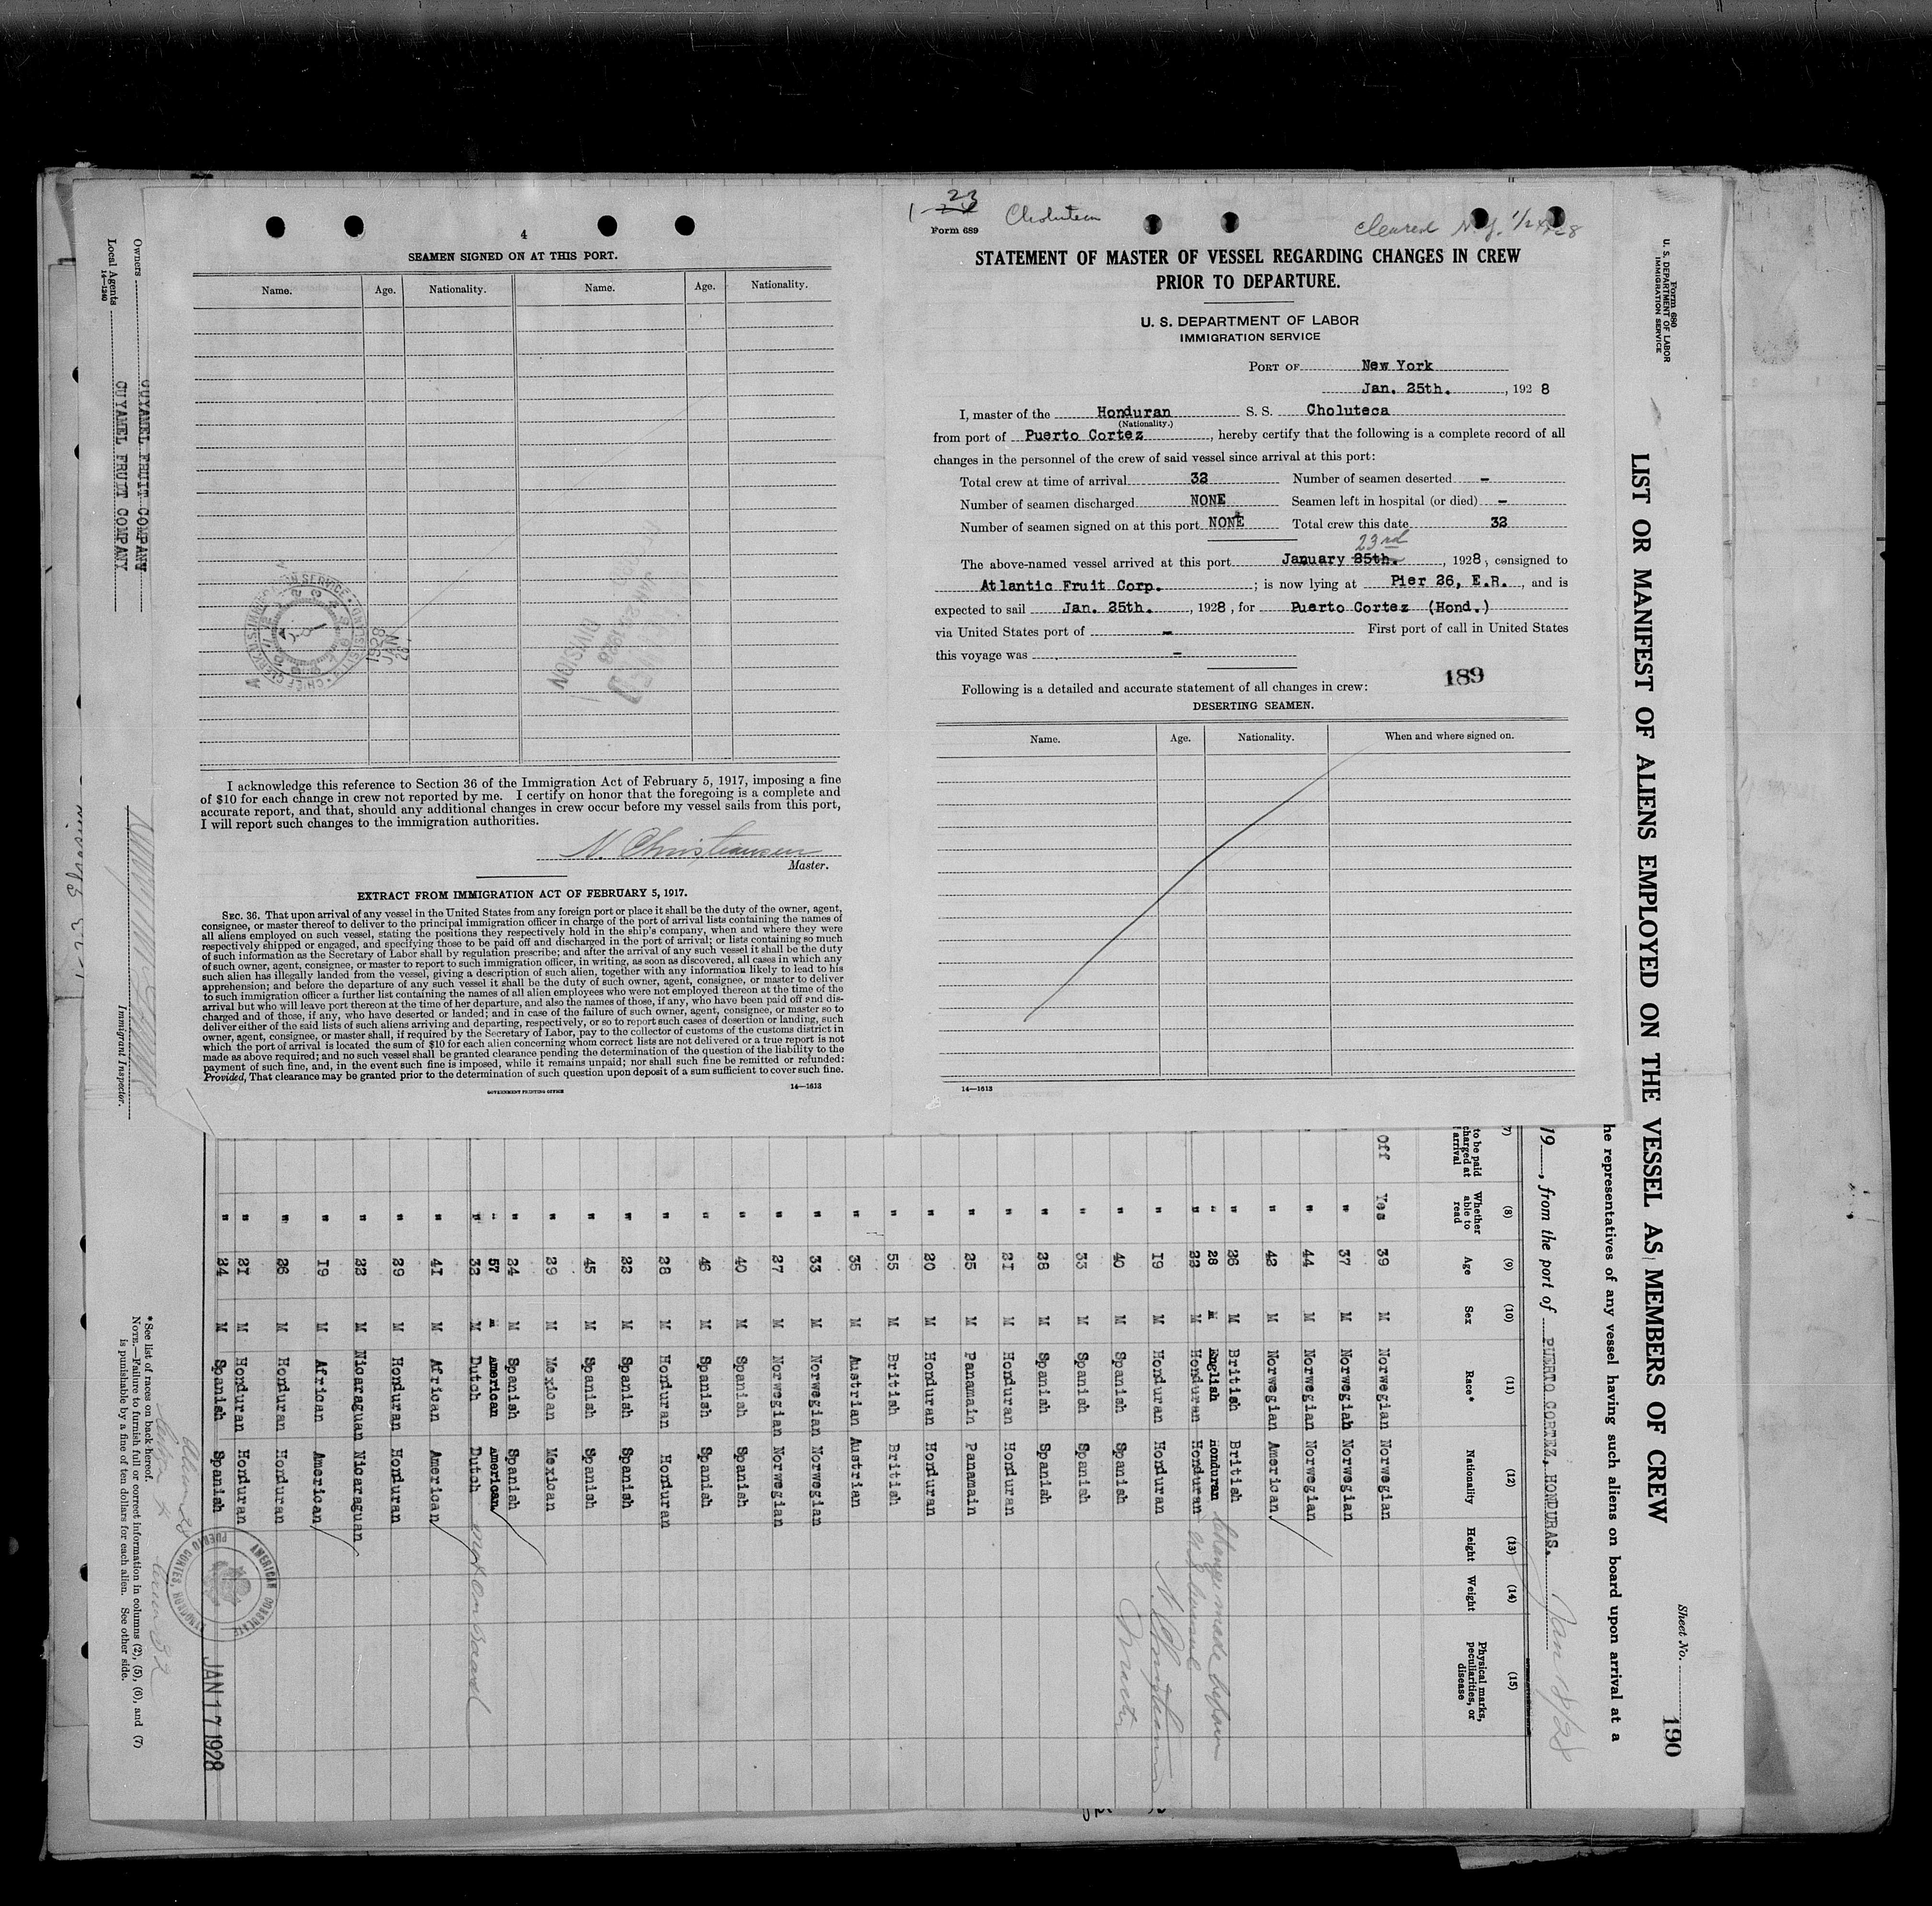 4
SEAMEN SIGNED ON AT THIS PORT.
Name. Age. Nationality. Name. Age. Nationality.
I acknowledge this reference to Section 36 of the Immigration Act of February 5, 1917, imposing a fine
of $10 for each change in crew not reported by me. I certify on honor that the foregoing is a complete and
accurate report, and that, should any additional changes in crew occur before my vessel sails from this port,
I will report such changes to the immigration authorities.
N. Christiansen
Master.
EXTRACT FROM IMMIGRATION ACT OF FEBRUARY 5, 1917.
SEC. 36. That upon arrival of any vessel in the United States from any foreign port or place it shall be the duty of the owner, agent,
consignee, or master thereof to deliver to the principal immigration officer in charge of the port of arrival lists containing the names of
all aliens employed on such vessel, stating the positions they respectively hold in the ship's company, when and where they were
respectively shipped or engaged, and specifying those to be paid off and discharged in the port of arrival; or lists containing so much
of such information as the Secretary of Labor shall by regulation prescribe; and after the arrival of any such vessel it shall be the duty
of such owner, agent, consignee, or master to report to such immigration officer, in writing, as soon as discovered, all cases in which any
such alien has illegally landed from the vessel, giving a description of such alien, together with any information likely to lead to his
apprehension; and before the departure of any such vessel it shall be the duty of such owner, agent, consignee, or master to deliver
to such immigration officer a further list containing the names of all alien employees who were not employed thereon at the time of the
arrival but who will leave port thereon at the time of her departure, and also the names of those, if any, who have been paid off and dis-
charged and of those, if any, who have deserted or landed; and in case of the failure of such owner, agent, consignee, or master so to
deliver either of the said lists of such aliens arriving and departing, respectively, or so to report such cases of desertion or landing, such
owner, agent, consignee, or master shall, if required by the Secretary of Labor, pay to the collector of customs of the customs district in
which the port of arrival is located the sum of $10 for each alien concerning whom correct lists are not delivered or a true report is not
made as above required; and no such vessel shall be granted clearance pending the determination of the question of the liability to the
payment of such fine, and, in the event such fine is imposed, while it remains unpaid; nor shall such fine be remitted or refunded:
Provided, That clearance may be granted prior to the determination of such question upon deposit of a sum sufficient to cover such fine.
GOVERNMENT PRINTING OFFICE 14—1613
1-23 Choluteca
Cleared N.Y.
Form 689
STATEMENT OF MASTER OF VESSEL REGARDING CHANGES IN CREW
PRIOR TO DEPARTURE.
U. S. DEPARTMENT OF LABOR
IMMIGRATION SERVICE
PORT OF New York
Jan. 25th. , 1928
I, master of the Honduran S. S. Choluteca
(Nationality.)
from port of Puerto Cortez , hereby certify that the following is a complete record of all
changes in the personnel of the crew of said vessel since arrival at this port:
Total crew at time of arrival 32 Number of seamen deserted -
Number of seamen discharged NONE Seamen left in hospital (or died) -
Number of seamen signed on at this port NONE Total crew this date 32
23rd
The above-named vessel arrived at this port January 25th. , 1928, consigned to
Atlantic Fruit Corp. ; is now lying at Pier 26, E.R. , and is
expected to sail Jan. 25th. , 1928, for Puerto Cortez (Hond.)
via United States port of - First port of call in United States
this voyage was -
189
Following is a detailed and accurate statement of all changes in crew:
DESERTING SEAMEN.
Name. Age. Nationality. When and where signed on.
14—1613
Form 680
U. S. DEPARTMENT OF LABOR
IMMIGRATION SERVICE
Sheet No. 190
LIST OR MANIFEST OF ALIENS EMPLOYED ON THE VESSEL AS MEMBERS OF CREW
he representatives of any vessel having such aliens on board upon arrival at a
19 , from the port of PUERTO CORTEZ, HONDURAS. Jan 18/28
(7) (8) (9) (10) (11) (12) (13) (14) (15)
to be paid charged at arrival Whether able to read Age Sex Race* Nationality Height Weight Physical marks, peculiarities, or disease
Off Yes 39 M Norwegian Norwegian
" 37 M Norwegian Norwegian
" 44 M Norwegian Norwegian
" 42 M Norwegian American
" 26 M British British
" 28 M English Honduran Change made before
" 22 M Honduran Honduran
" 19 M Honduran Honduran
" 40 M Spanish Spanish
" 33 M Spanish Spanish
" 28 M Spanish Spanish
" 21 M Honduran Honduran
" 25 M Panamain Panamain
" 20 M Honduran Honduran
" 55 M British British
" 35 M Austrian Austrian
" 33 M Norwegian Norwegian
" 27 M Norwegian Norwegian
" 40 M Spanish Spanish
" 46 M Spanish Spanish
" 28 M Honduran Honduran
" 22 M Spanish Spanish
" 45 M Spanish Spanish
" 29 M Mexican Mexican
" 24 M Spanish Spanish
" 57 M American American
" 32 M Dutch Dutch not on board
" 41 M African American
" 29 M Honduran Honduran
" 22 M Nicaraguan Nicaraguan
" 19 M African American
" 26 M Honduran Honduran
" 21 M Honduran Honduran
" 24 M Spanish Spanish
AMERICAN CONSULATE
PUERTO CORTES, HONDURAS
JAN 17 1928
*See list of races on back hereof.
NOTE.—Failure to furnish full or correct information in columns (2), (5), (6), and (7)
is punishable by a fine of ten dollars for each alien. See other side.
Immigrant Inspector.
Owners CUYAMEL FRUIT COMPANY
Local Agents CUYAMEL FRUIT COMPANY
14—1240